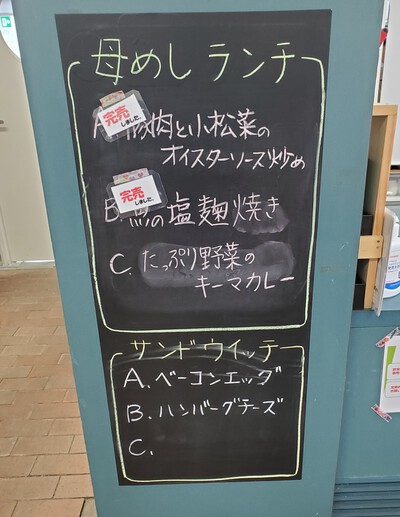 母めしランチ
完売
しました。
A. 豚肉と小松菜の
オイスターソース炒め
完売
しました。
B. 魚の塩麹焼き
C. たっぷり野菜の
キーマカレー
サンドウイッチ
A. ベーコンエッグ
B. ハンバーグチーズ
C.